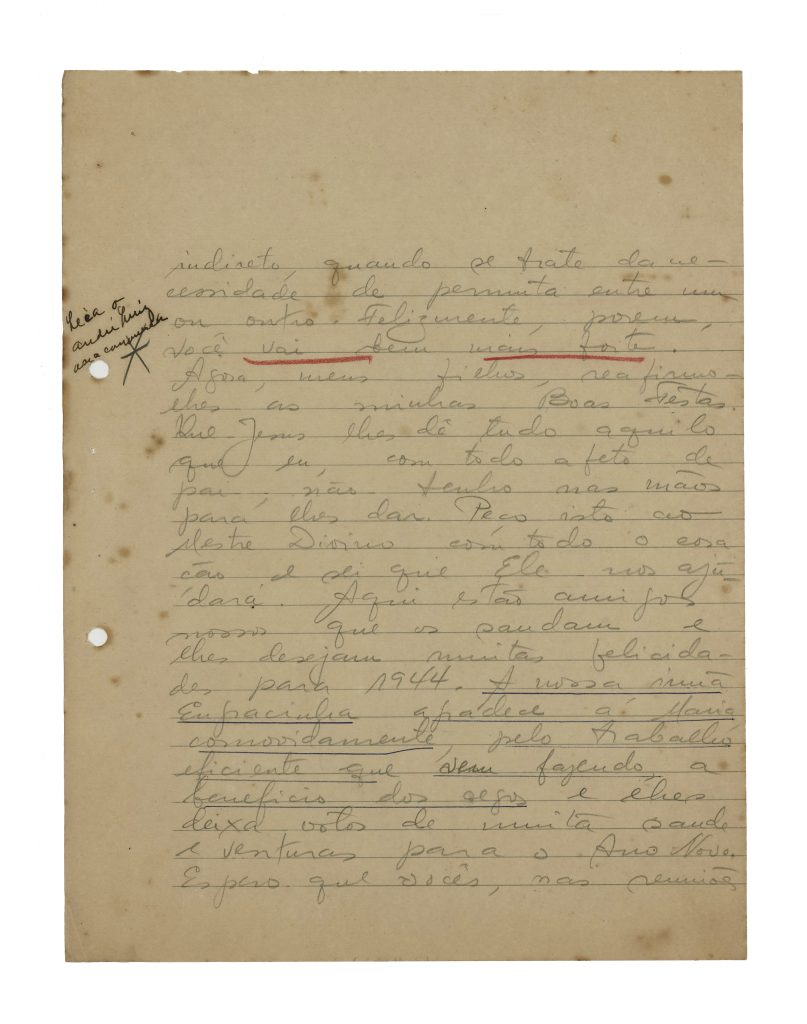 indireto, quando se trate da ne-
cessidade de permuta entre um
ou outro. Felizmente, porem,
você vai bem mais forte.
Leia o
André Luiz
Agora, meus filhos, reafirmo-
lhes as minhas Boas Festas.
Que Jesus lhes dê tudo aquilo
que eu, com todo afeto de
pai, não tenho nas mãos
para lhes dar. Peço isto ao
Mestre Divino com todo o cora
ção e sei que Ele nos aju-
dará. Aqui estão amigos
nossos que os saudam e
lhes desejam muitas felicida-
des para 1944. A nossa irmã
Engracinha agradece á Maria
comovidamente, pelo trabalho
eficiente que vem fazendo, a
beneficio dos cegos e lhes
deixa votos de muita saude
e venturas para o Ano Novo.
Espero que vocês, nas reuniões